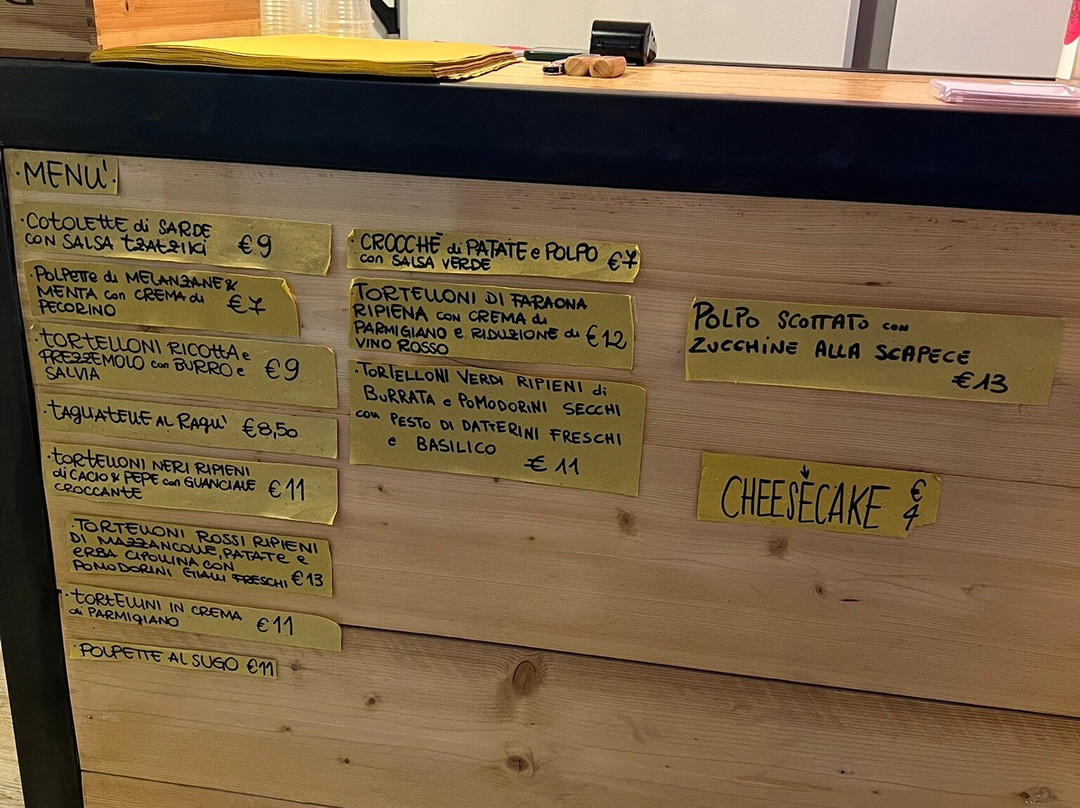 ·MENU'·
·COTOLETTE di SARDE
CON SALSA TZATZIKI €9
·POLPETTE di MELANZANE &
MENTA con CREMA di
PECORINO €7
·TORTELLONI RICOTTA e
PREZZEMOLO con BURRO e
SALVIA €9
·TAGLIATELLE AL RAGU' €8,50
·TORTELLONI NERI RIPIENI
di CACIO & PEPE con GUANCIALE
CROCCANTE €11
·TORTELLONI ROSSI RIPIENI
DI MAZZANCOLLE, PATATE e
ERBA CIPOLLINA CON
POMODORINI GIALLI FRESCHI €13
·TORTELLINI IN CREMA
di PARMIGIANO €11
·POLPETTE AL SUGO €11
·CROCCHÈ di PATATE e POLPO
con SALSA VERDE €7
TORTELLONI DI FARAONA
RIPIENA CON CREMA di
PARMIGIANO E RIDUZIONE di €12
VINO ROSSO
·TORTELLONI VERDI RIPIENI di
BURRATA e POMODORINI SECCHI
con PESTO DI DATTERINI FRESCHI
e BASILICO
€11
POLPO SCOTTATO con
ZUCCHINE ALLA SCAPECE
€13
CHEESECAKE €4